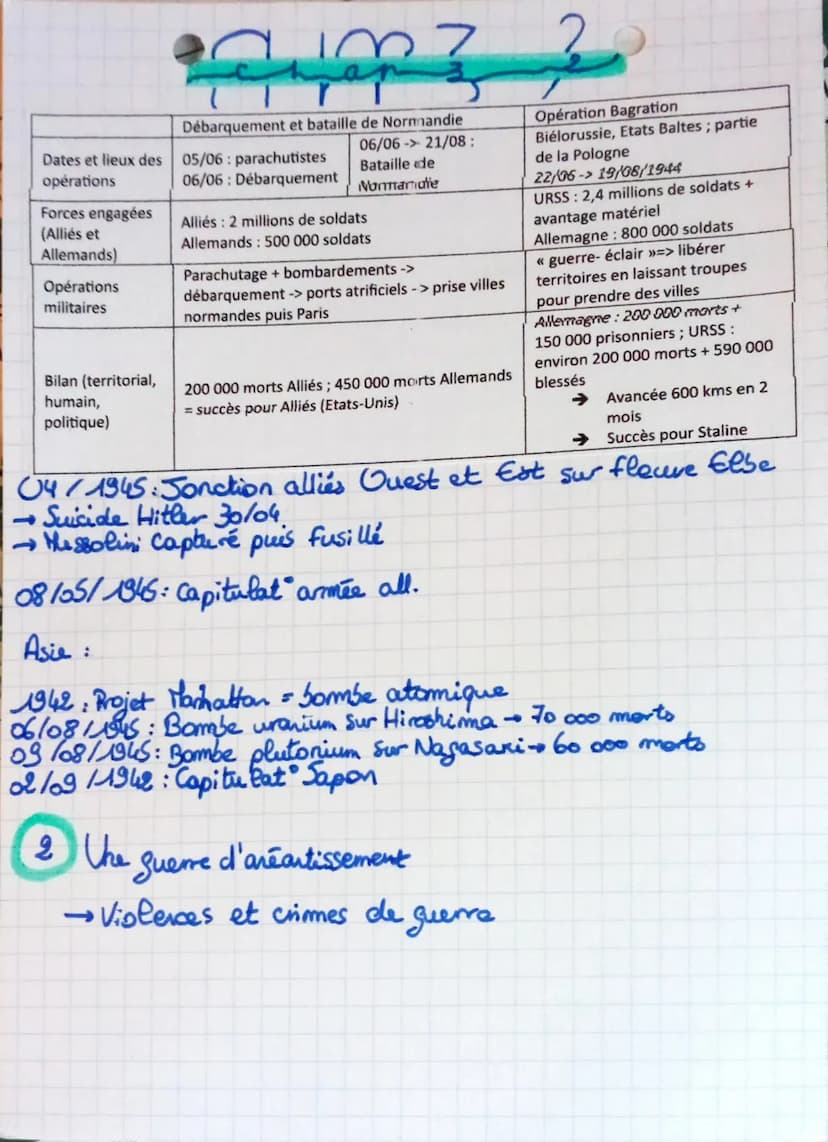 Chap 3, 2
Débarquement et bataille de Normandie
Opération Bagration
Dates et lieux des
opérations
05/06 : parachutistes
06/06 : Débarquement
06/06 -> 21/08 :
Bataille de
Normandie
Biélorussie, Etats Baltes ; partie
de la Pologne
22/06 -> 19/08/1944
Forces engagées
(Alliés et
Allemands)
Alliés : 2 millions de soldats
Allemands : 500 000 soldats
URSS : 2,4 millions de soldats +
avantage matériel
Allemagne : 800 000 soldats
Opérations
militaires
Parachutage + bombardements ->
débarquement -> ports atrificiels - > prise villes
normandes puis Paris
« guerre- éclair »=> libérer
territoires en laissant troupes
pour prendre des villes
Bilan (territorial,
humain,
politique)
200 000 morts Alliés ; 450 000 morts Allemands
= succès pour Alliés (Etats-Unis)
Allemagne : 200 000 morts +
150 000 prisonniers ; URSS :
environ 200 000 morts + 590 000
blessés
➔ Avancée 600 kms en 2
mois
➔ Succès pour Staline
04/1945 : Jonction alliés Ouest et Est sur fleuve Elbe
→ Suicide Hitler 30/04
→ Mussolini capturé puis fusillé
08/05/1945 : Capitulat° armée all.
Asie :
1942 : Projet Manhattan = bombe atomique
06/08/1945 : Bombe uranium sur Hiroshima → 70 000 morts
09/08/1945 : Bombe plutonium sur Nagasaki → 60 000 morts
02/09/1942 : Capitulat° Japon
2 Une guerre d'anéantissement
→ Violences et crimes de guerre